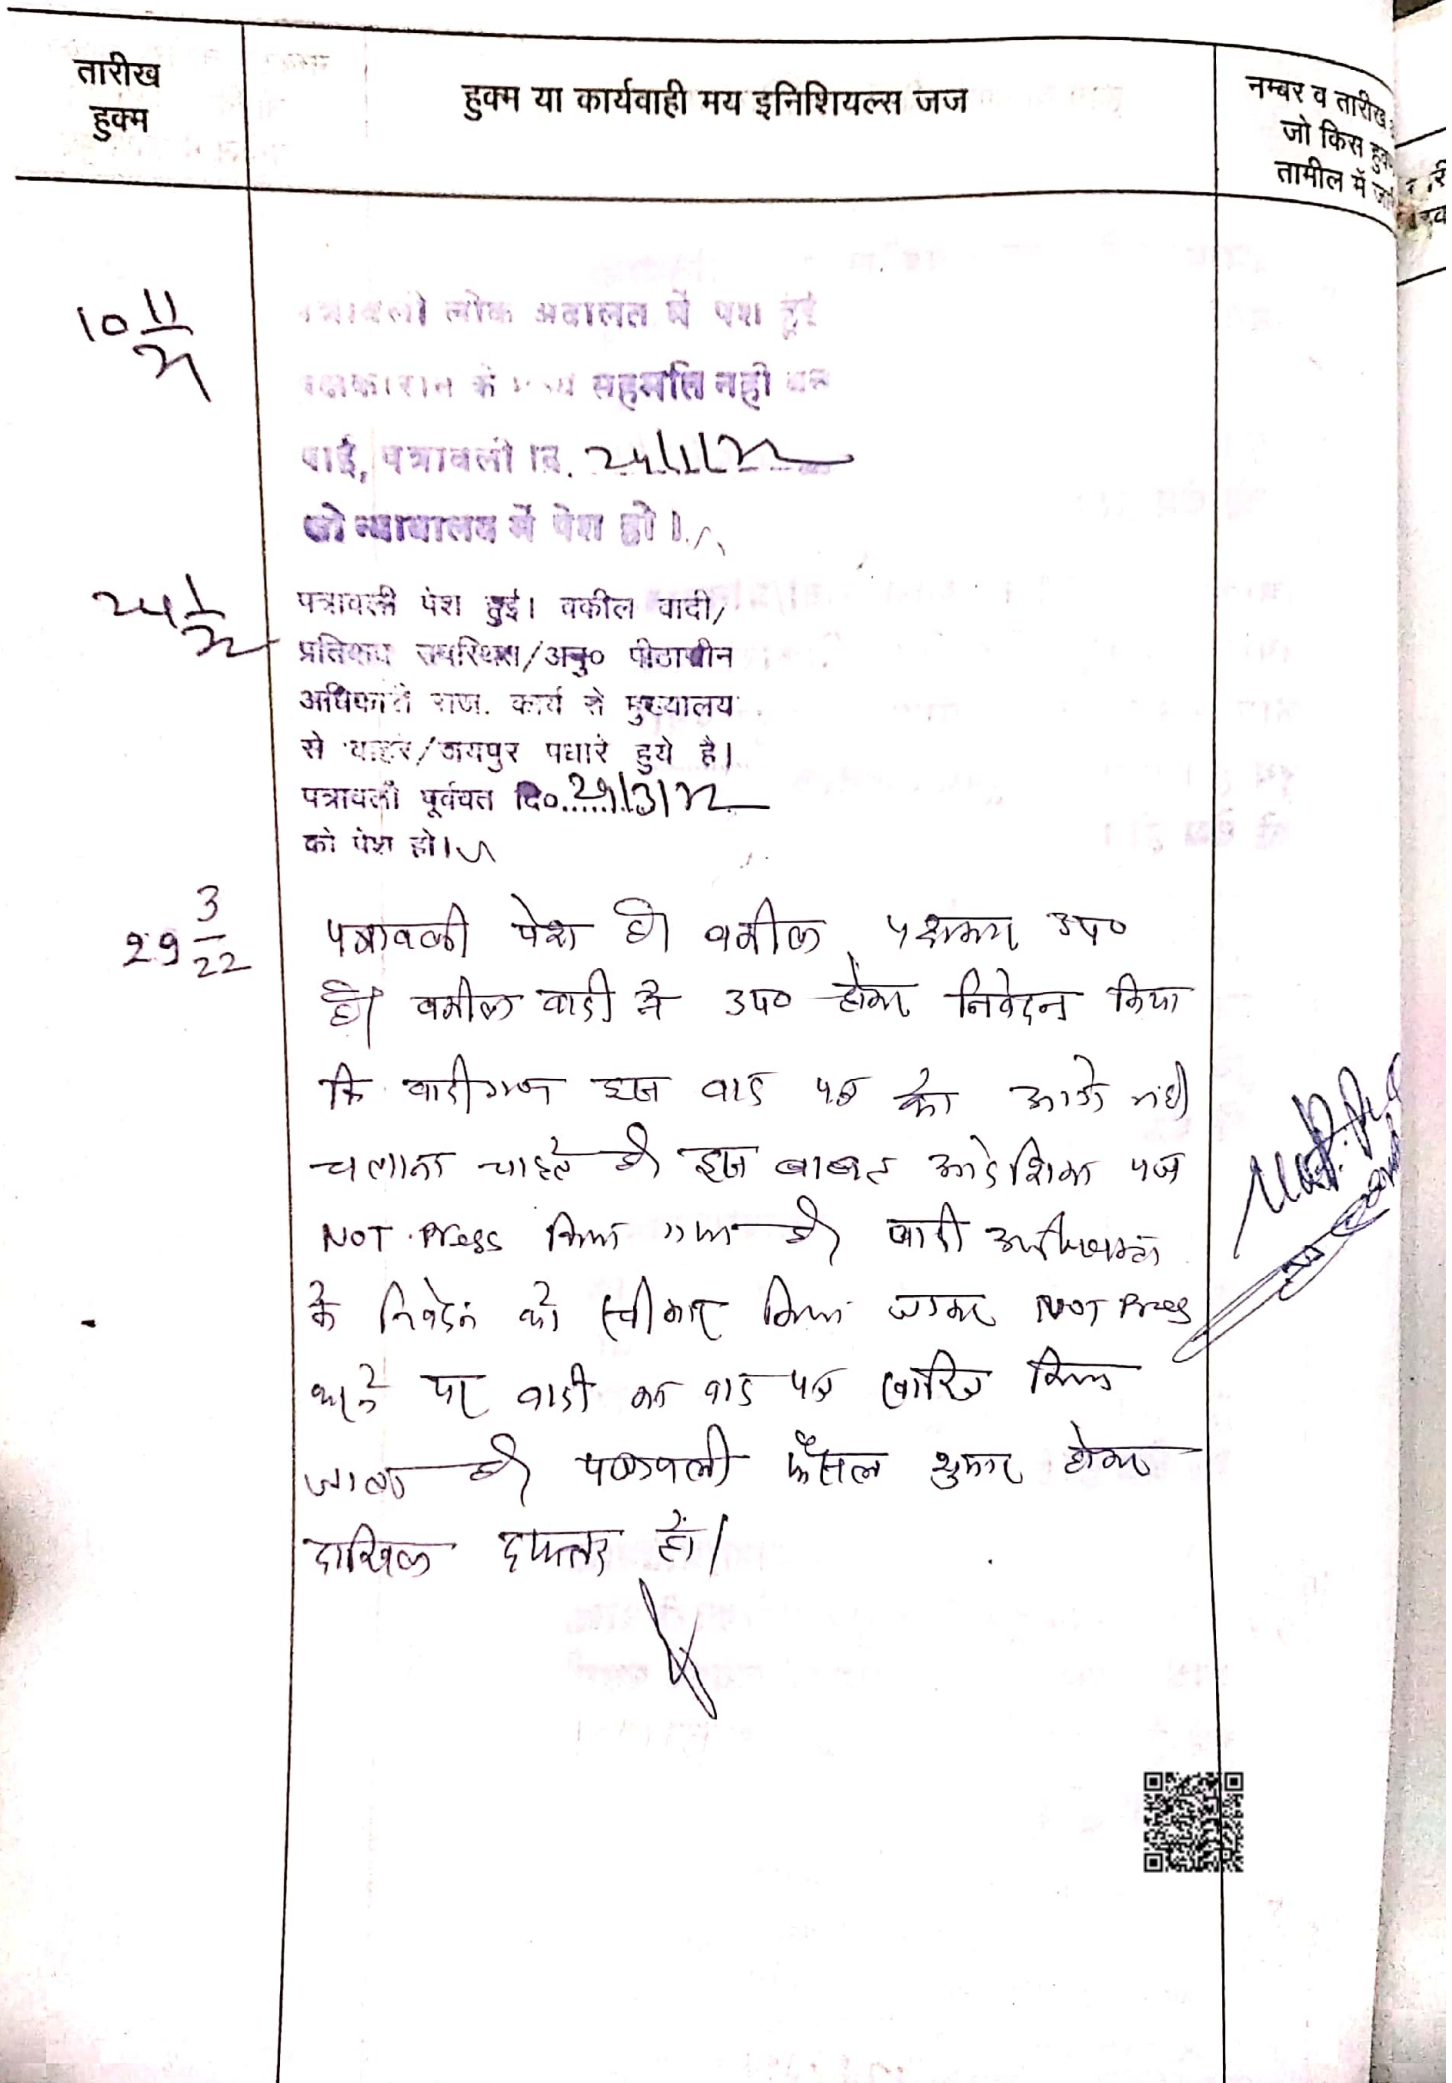 तारीख
हुक्म
हुक्म या कार्यवाही मय इनिशियल्स जज
नम्बर व तारीख
जो किस
तामील में
10 11/21
पत्रावली लोक अदालत में पेश हुई
पक्षकारान के मध्य सहमति नही बन
पाई, पत्रावली दि. 24/1/22
को न्यायालय में पेश हो।
24 1/22
पत्रावली पेश हुई। वकील वादी/
प्रतिवादी उपस्थित/अनु० पीठासीन
अधिकारी राज. कार्य से मुख्यालय
से बाहर/जयपुर पधारे हुये है।
पत्रावली पूर्ववत दि० 29/3/22
को पेश हो।
29 3/22
पत्रावली पेश है। वकील पक्षकार उप०
है। वकील वादी ने उप० होकर निवेदन किया
कि वादीगण इस वाद पत्र को आगे नही
चलाना चाहते है। इस बाबत आदेशिका पर
NOT Press किया गया है। वादी
के निवेदन को स्वीकार किया जाकर NOT Press
करने पर वादी का वाद पत्र खारिज किया
जाता है। पत्रावली फैसल शुमार होकर
दाखिल दफ्तर हो।